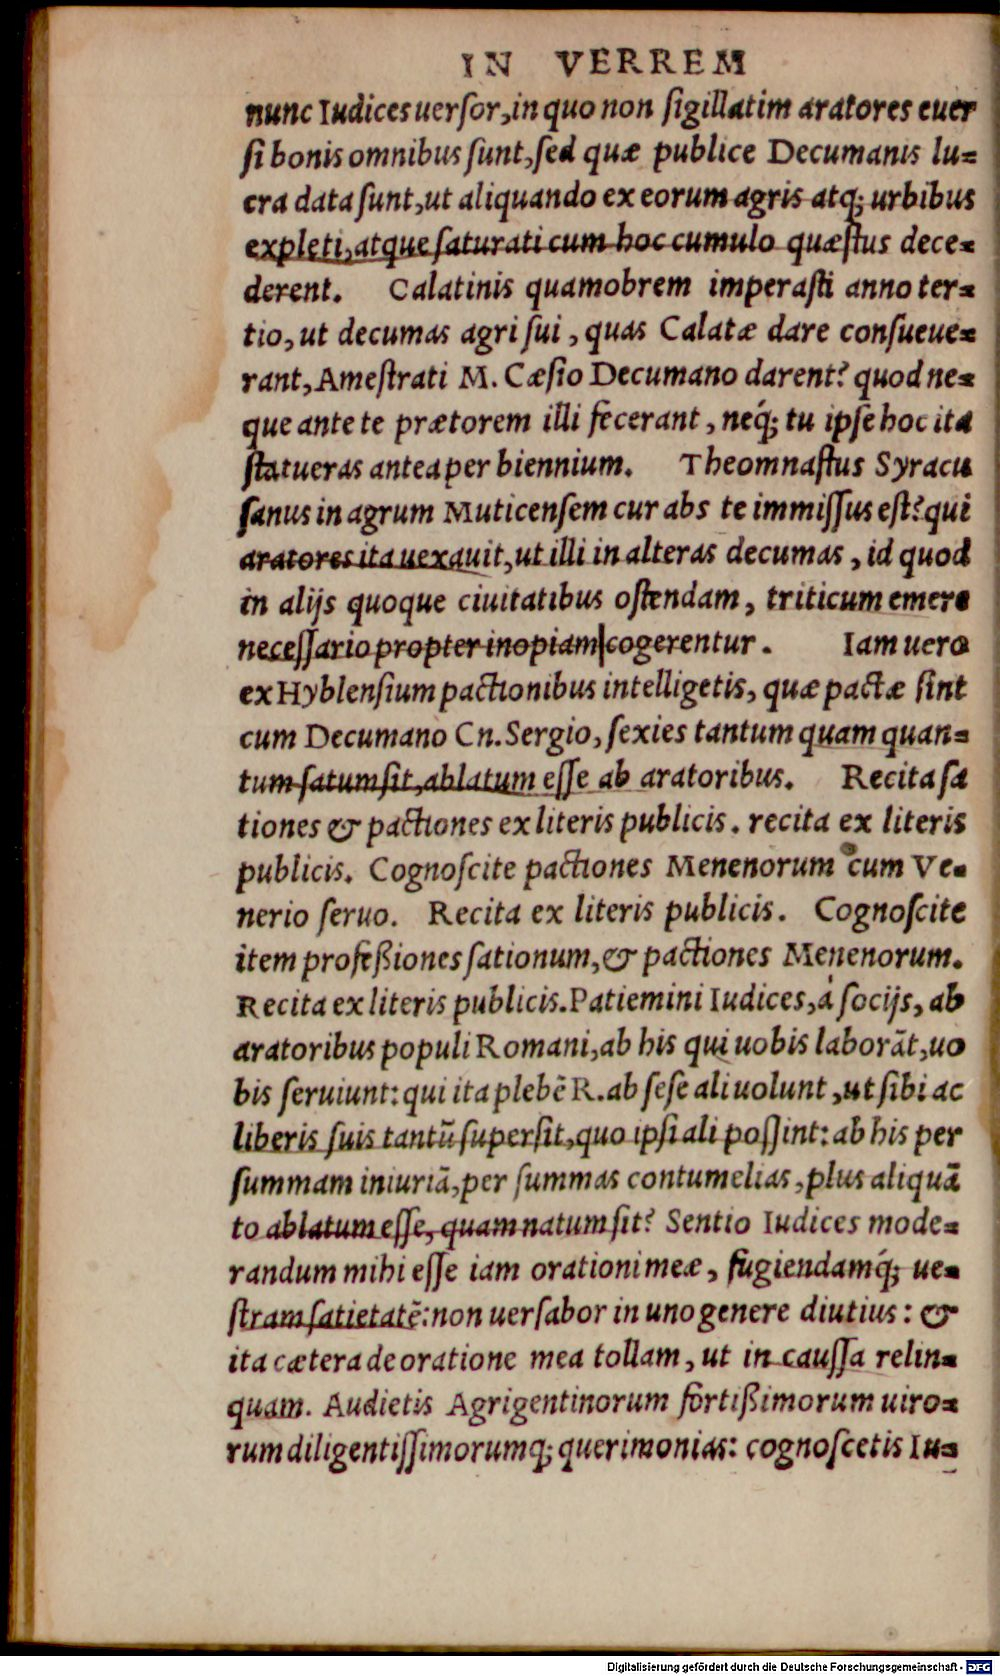 IN VERREM
nunc Iudices uerſor, in quo non ſigillatim aratores euer
ſi bonis omnibus ſunt, ſed quæ publice Decumanis lu=
cra data ſunt, ut aliquando ex eorum agris atq; urbibus
expleti, atque ſaturati cum hoc cumulo quæſtus dece=
derent. Calatinis quamobrem imperaſti anno ter=
tio, ut decumas agri ſui, quas Calatæ dare conſueue=
rant, Ameſtrati M. Cæſio Decumano darent? quod ne=
que ante te prætorem illi fecerant, neq́; tu ipſe hoc ita
ſtatueras antea per biennium. Theomnaſtus Syracu
ſanus in agrum Muticenſem cur abs te immiſſus eſt? qui
aratores ita uexauit, ut illi in alteras decumas, id quod
in alijs quoque ciuitatibus oſtendam, triticum emere
neceſſario propter inopiam cogerentur. Iam uero
ex Hyblenſium pactionibus intelligetis, quæ pactæ ſint
cum Decumano Cn. Sergio, ſexies tantum quam quan=
tum ſatum ſit, ablatum eſſe ab aratoribus. Recita ſa
tiones & pactiones ex literis publicis. recita ex literis
publicis. Cognoſcite pactiones Menenorum cum Ve=
nerio ſeruo. Recita ex literis publicis. Cognoſcite
item profeßiones ſationum, & pactiones Menenorum.
Recita ex literis publicis. Patiemini Iudices, à ſocijs, ab
aratoribus populi Romani, ab his qui uobis laborãt, uo
bis ſeruiunt: qui ita plebẽ R. ab ſeſe ali uolunt, ut ſibi ac
liberis ſuis tantũ ſuperſit, quo ipſi ali poſſint: ab his per
ſummam iniuriã, per ſummas contumelias, plus aliquã
to ablatum eſſe, quam natum ſit? Sentio Iudices mode=
randum mihi eſſe iam orationi meæ, fugiendamq́; ue=
ſtram ſatietatẽ: non uerſabor in uno genere diutius: &
ita cætera de oratione mea tollam, ut in cauſſa relin=
quam. Audietis Agrigentinorum fortißimorum uiro=
rum diligentiſſimorumq; querimonias: cognoſcetis Iu=
Digitalisierung gefördert durch die Deutsche Forschungsgemeinschaft - DFG